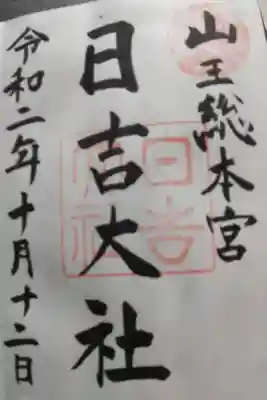 山王総本宮
日吉大社
令和二年十月十二日
日吉大社